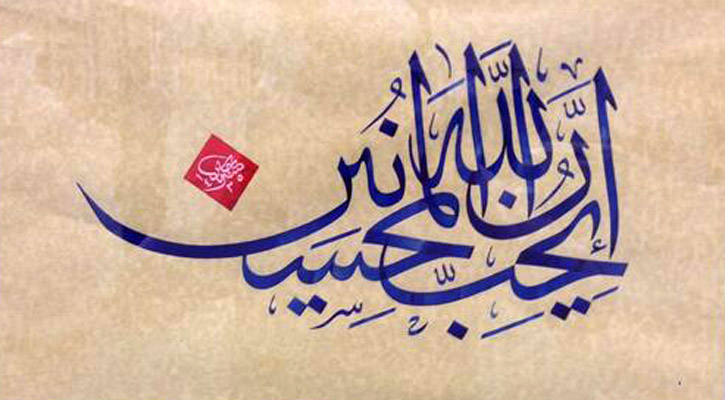 إِنَّ اللَّهَ يُحِبُّ الْمُحْسِنِينَ